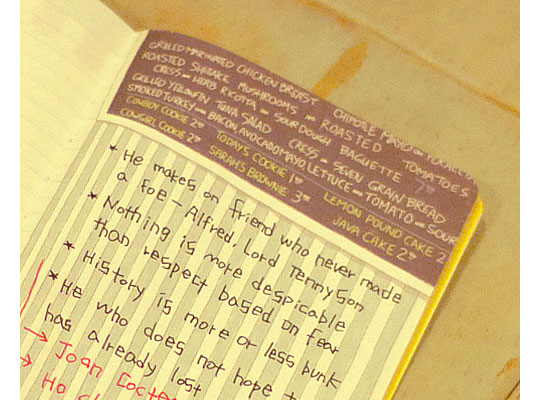 GRILLED MARINATED CHICKEN BREAST CHIPOTLE MAYO
ROASTED SHIITAKE MUSHROOMS ROASTED TOMATOES
CRESS HERB RICOTTA SOUR DOUGH BAGUETTE
GRILLED YELLOWFIN TUNA SALAD CRESS SEVEN GRAIN BREAD
SMOKED TURKEY BACON AVOCADO MAYO LETTUCE TOMATO SOUR
COWBOY COOKIE 2 TODAY'S COOKIE 1 LEMON POUND CAKE 2
COWGIRL COOKIE 2 SARAH'S BROWNIE 3 JAVA CAKE 2
* He makes on friend who never made
a foe - Alfred, Lord Tennyson
* Nothing is more despicable
than respect based on fear
* History is more or less bunk
* He who does not hope
has already lost
→ Joan Cocte
→ Ho